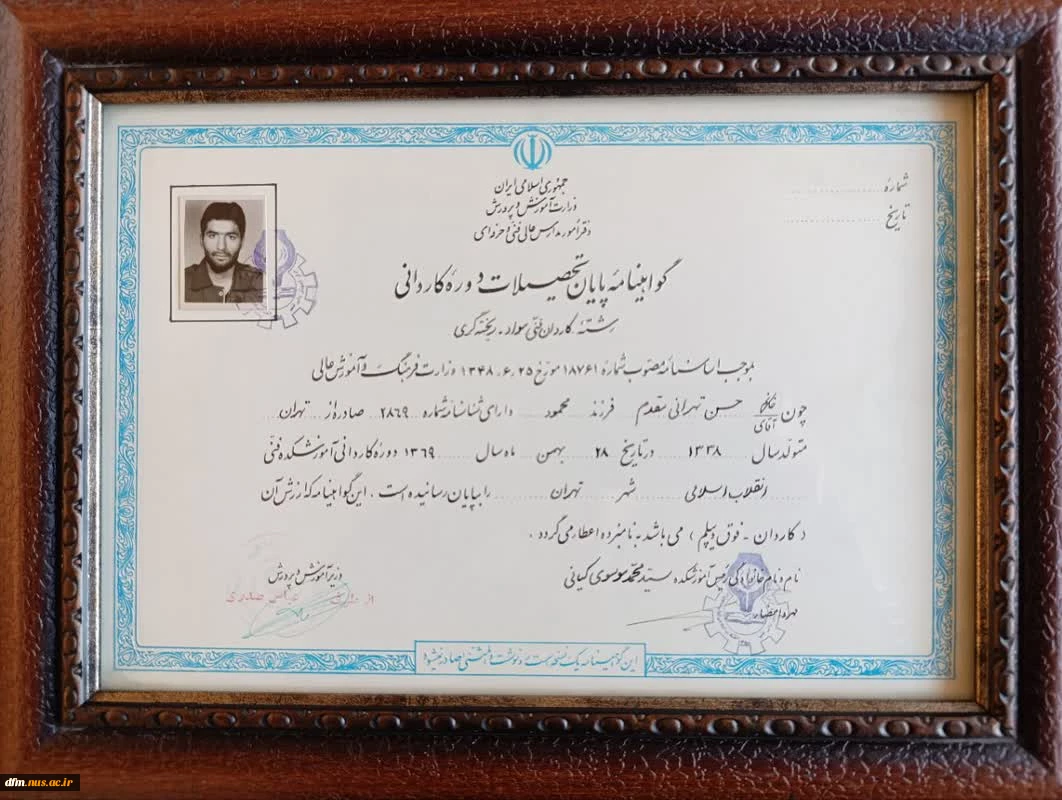 شماره
تاریخ
جمهوری اسلامی ایران
وزارت آموزش و پرورش
دفتر امور مدارس عالی فنی و حرفه‌ای
گواهینامه پایان تحصیلات دوره کاردانی
رشته کاردان فنی مواد - ریخته گری
بموجب اساسنامه مصوب شماره ۱۸۷۶۱ مورخ ۱۳۴۸.۶.۲۵ وزارت فرهنگ و آموزش عالی
چون خانم آقای حسن تهرانی مقدم فرزند محمود دارای شناسنامه شماره ۲۸۶۹ صادره از تهران
متولد سال ۱۳۳۸ در تاریخ ۲۸ بهمن ماه سال ۱۳۶۹ دوره کاردانی آموزشکده فنی
انقلاب اسلامی شهر تهران را بپایان رسانیده است ، این گواهینامه که ارزش آن
( کاردان - فوق دیپلم ) می باشد به نامبرده اعطا می گردد .
نام و نام خانوادگی رئیس آموزشکده سید محمد موسوی کیانی
مهر و امضاء
وزیر آموزش و پرورش
از طرف عباس صدری
این گواهینامه یک نسخه است و رونوشت یا المثنی صادر نمیشود
dfm.nus.ac.ir